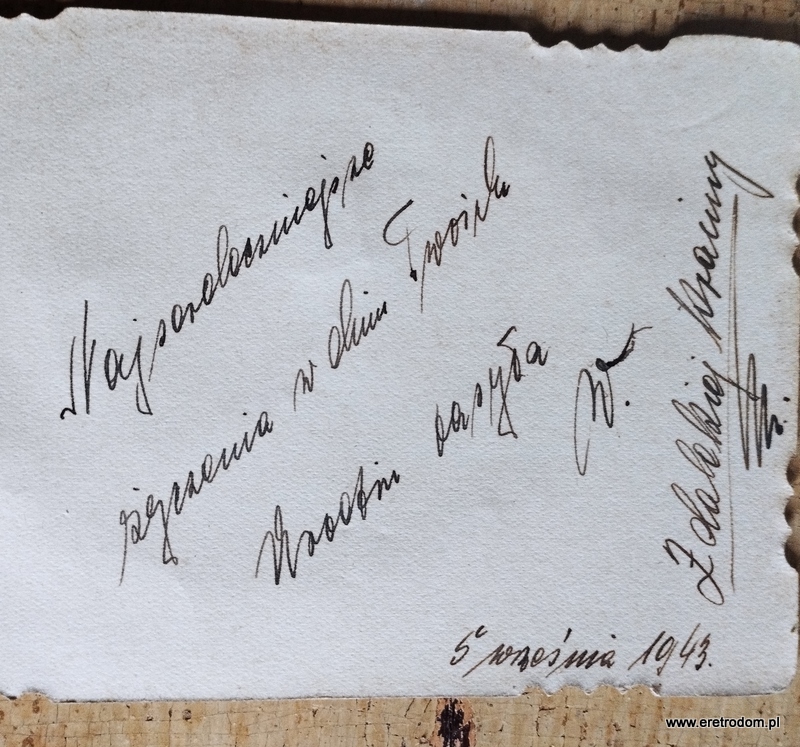 Najserdeczniejsze
życzenia w dniu Twoich
Urodzin zasyła
W.
Z dalekiej krainy
5 września 1943.
www.eretrodom.pl